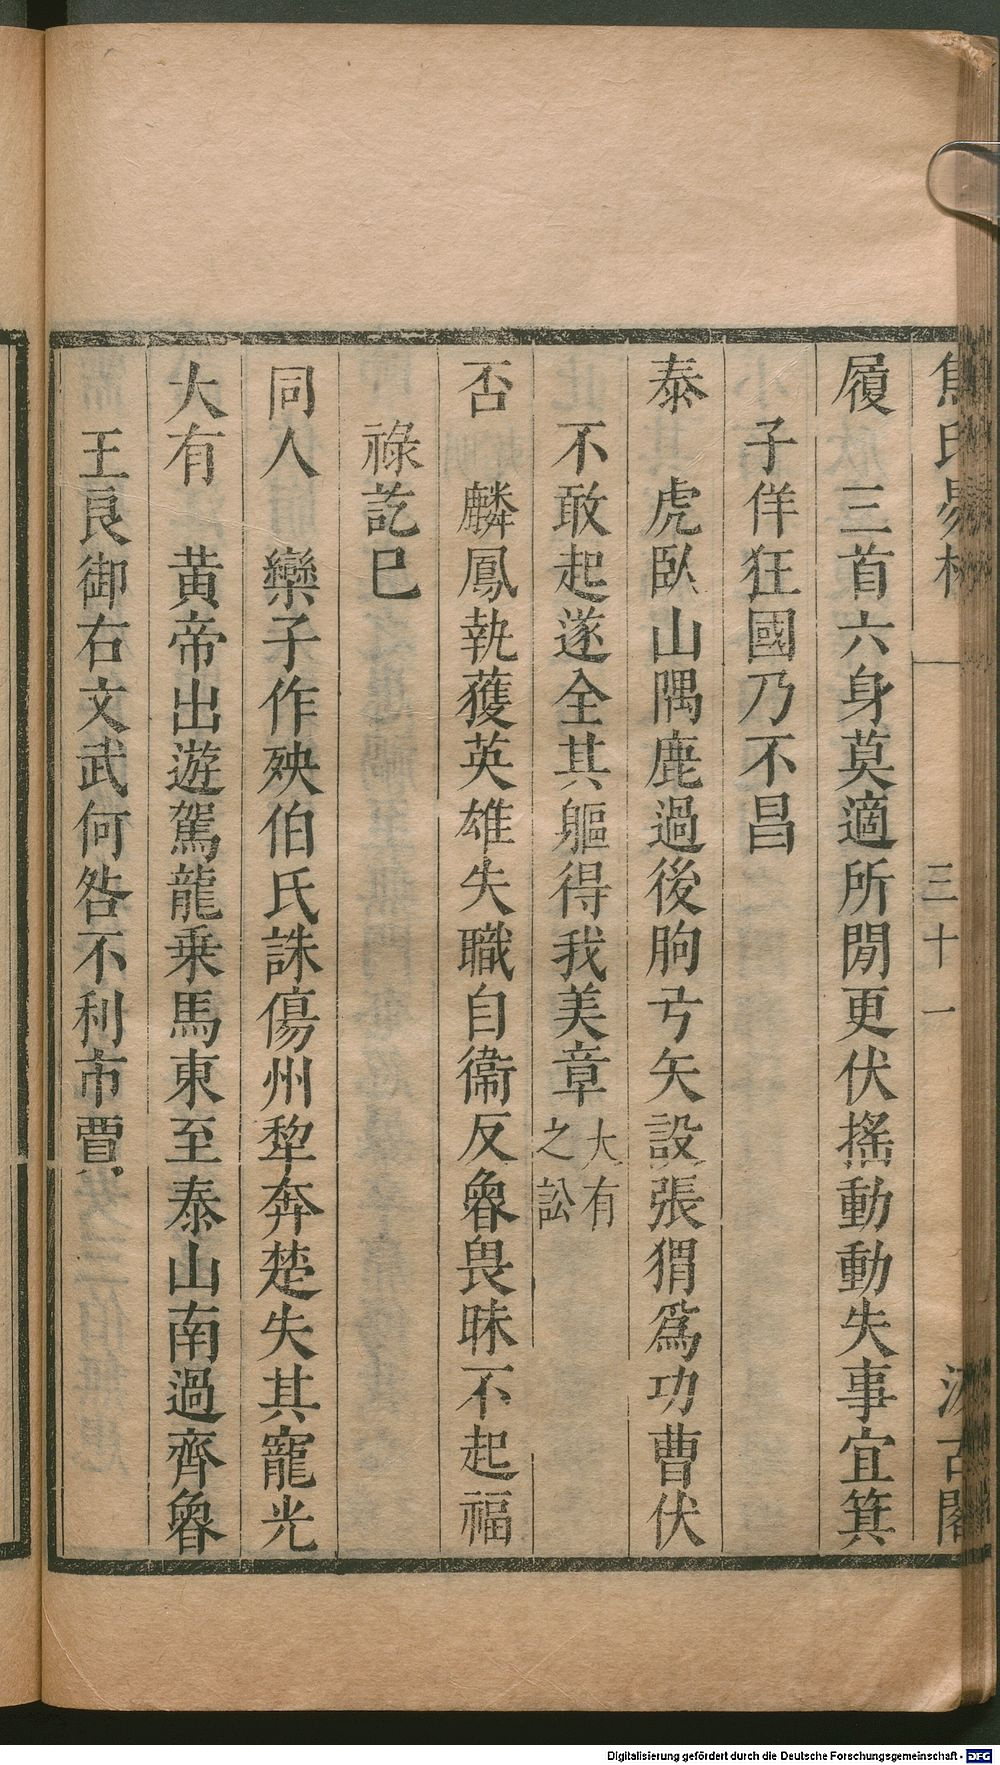 焦氏易林 三十一 汲古閣
履 三首六身莫適所閒更伏搖動動失事宜箕
子佯狂國乃不昌
泰 虎臥山隅鹿過後朐弓矢設張猬爲功曹伏
不敢起遂全其軀得我美章 大有
之訟
否 麟鳳執獲英雄失職自衞反魯畏昧不起福
祿訖巳
同人 欒子作殃伯氏誅傷州犂奔楚失其寵光
大有 黄帝出遊駕龍乗馬東至泰山南過齊魯
王良御右文武何咎不利市賈
Digitalisierung gefördert durch die Deutsche Forschungsgemeinschaft - DFG